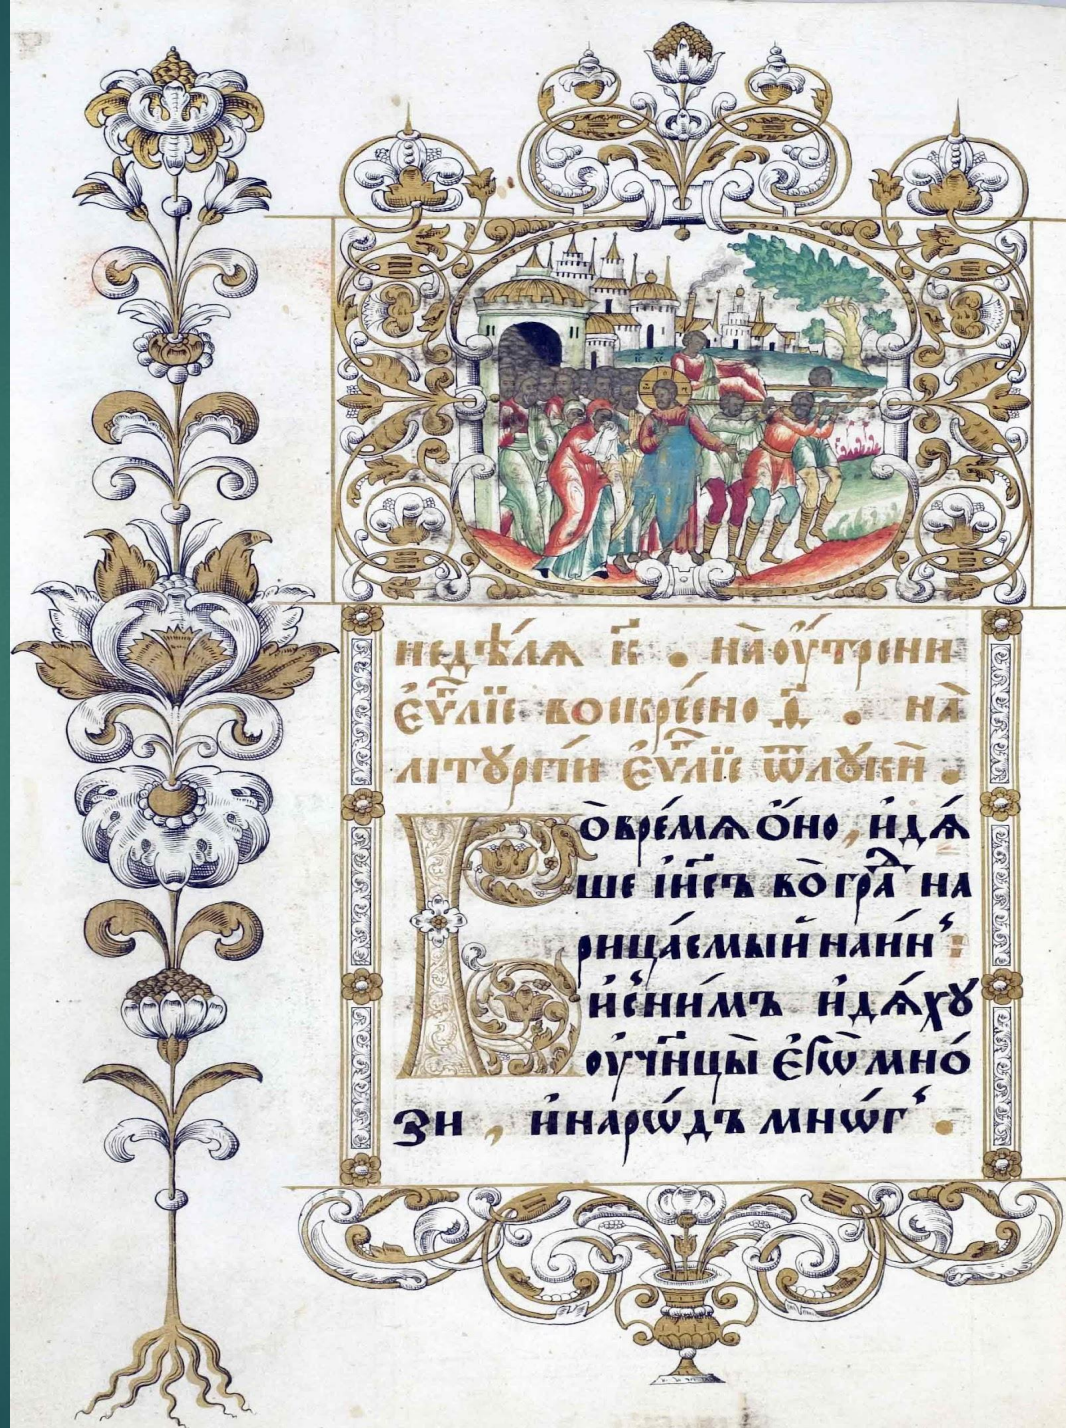 недѣ́лѧ к҃ . на̀ ѹ҆́трени
є҆ѵⷢ҇лїе воскре́сно д҃ . на̀
літꙋргі́и є҆ѵⷢ҇лїе ѿ лꙋкѝ .
Во̀ вре́мѧ ѻ҆́но , и҆дѧ́
ше і҆и҃съ во̀ граⷣ на
рица́емый наи́н̾ :
и҆ с̾ ни́мъ и҆дѧ́хꙋ
ѹ҆чн҃цы̀ є҆гѡ̀ мно́
зи , и҆ нарѡ́дъ мнѡ́г̾ .